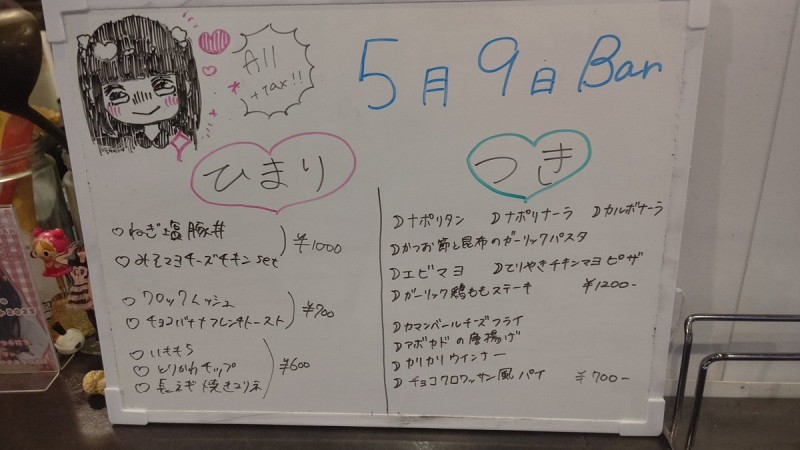 All
+ tax!!
5月9日 Bar
ひまり
♡ ねぎ塩豚丼
♡ みそマヨチーズチキン set
¥1000
♡ クロックムッシュ
♡ チョコバナナフレンチトースト
¥700
♡ いももち
♡ とりかわチップ
♡ 長ネギ焼き
¥600
つき
ナポリタン ナポリナーラ カルボナーラ
かつお節と昆布のガーリックパスタ
エビマヨ てりやきチキンマヨピザ
ガーリック鶏ももステーキ ¥1200-
カマンベールチーズフライ
アボカドの唐揚げ
カリカリウインナー
チョコクロワッサン風パイ ¥700-